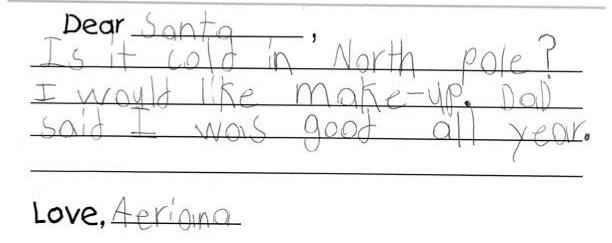 Dear Santa,
Is it cold in North pole?
I would like make-up. Dad
said I was good all year.
Love, Aeriana